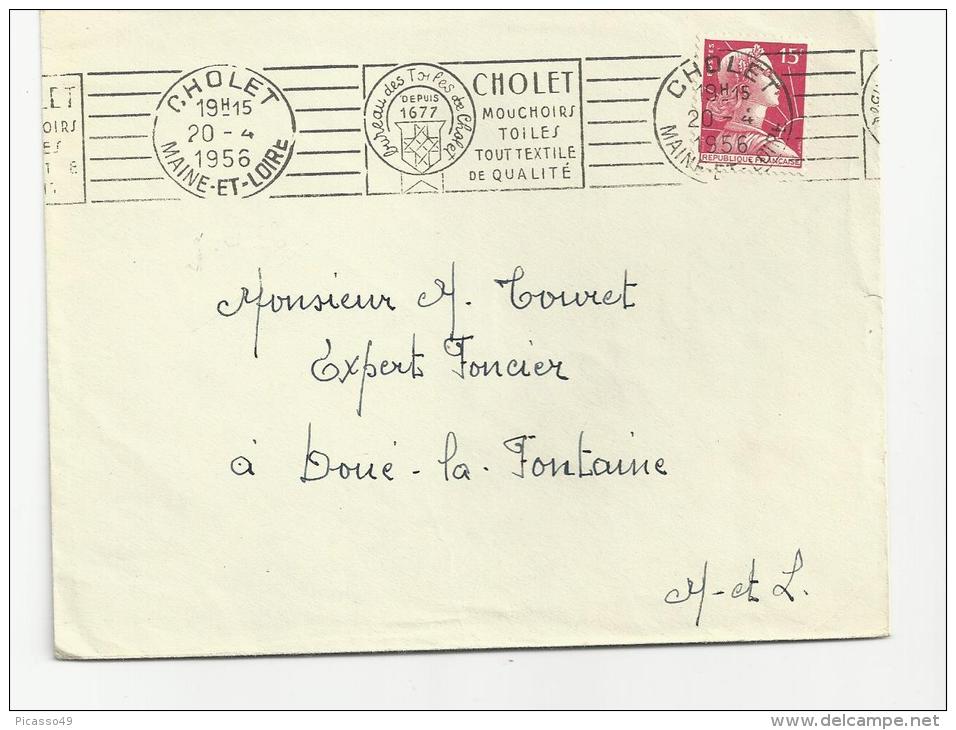 CHOLET
19H15
20-4
1956
MAINE-ET-LOIRE
bureau des Toiles de Cholet
DEPUIS
1677
CHOLET
MOUCHOIRS
TOILES
TOUT TEXTILE
DE QUALITÉ
CHOLET
19H15
20-4
1956
15F
REPUBLIQUE FRANÇAISE
Monsieur M. Touret
Expert Foncier
à Doué-la-Fontaine
M-et L.
Picasso49
www.delcampe.net